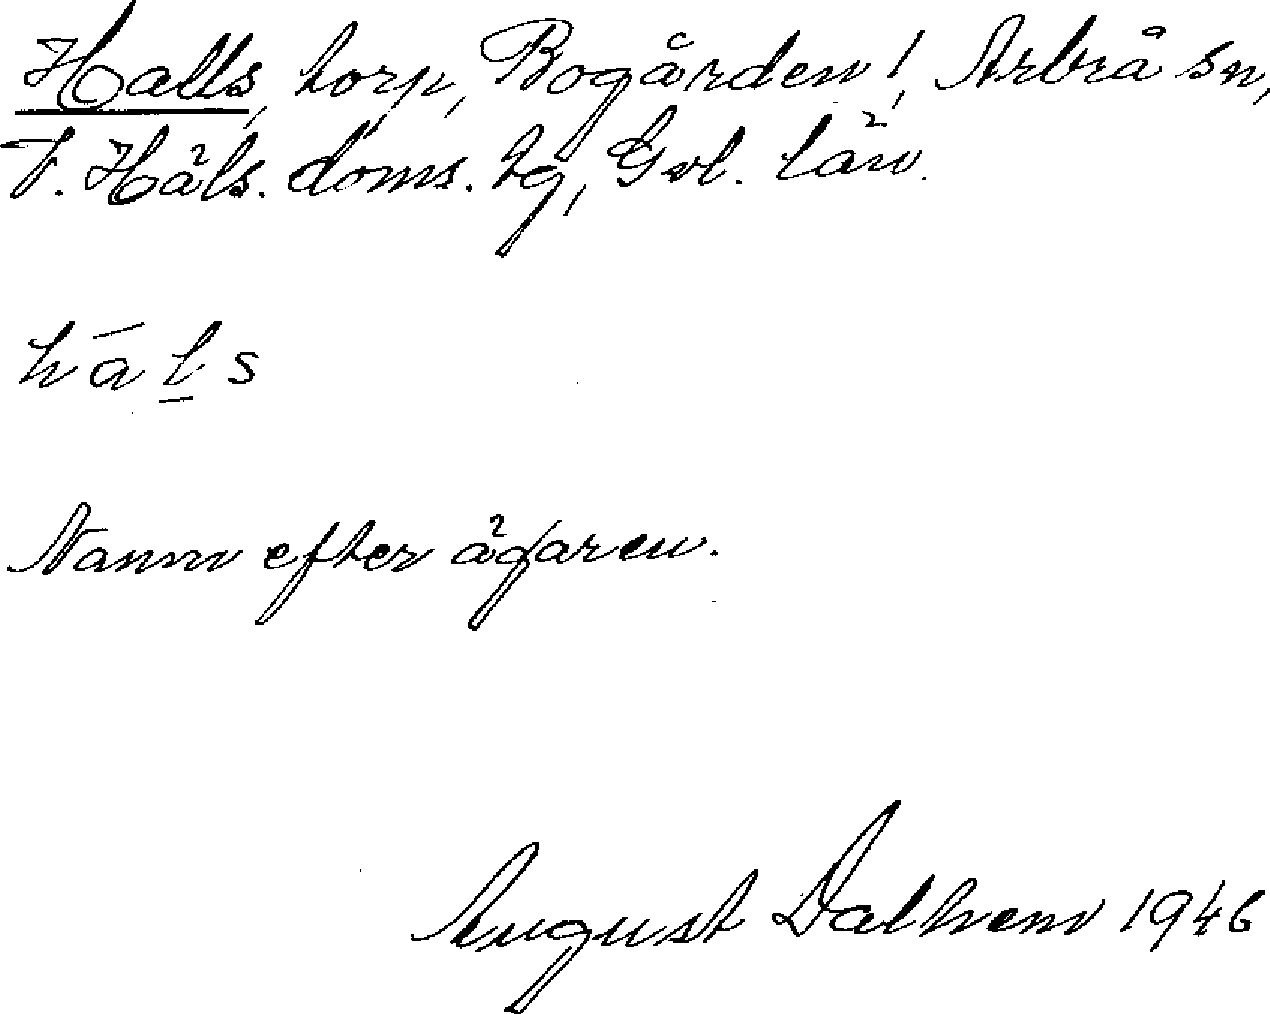 Halls, torp, Bogården!, Arbrå sn,
V. Häls. doms. tg, Gvl. län.
hāḻs
Namn efter ägaren.
August Dalhem 1946